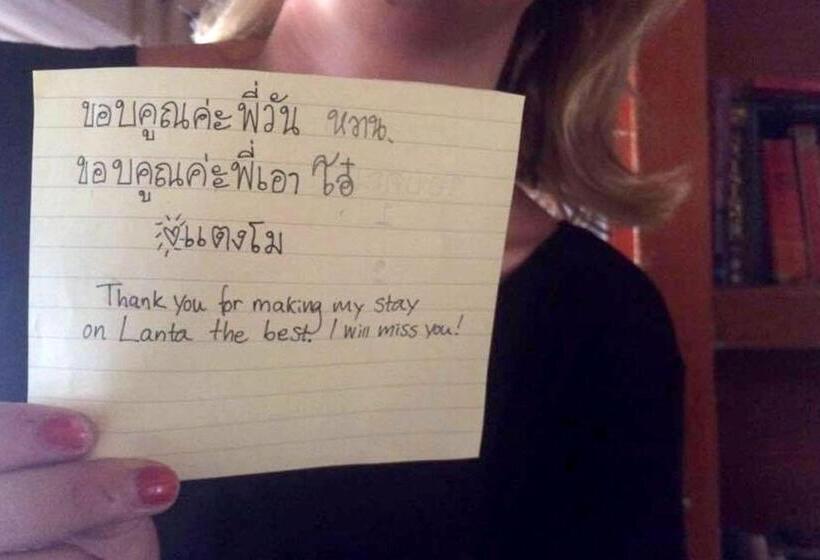 ขอบคูณค่ะ พี่วัน หวาน
ขอบคูณค่ะพี่เอา โอ๋
แตงโม
Thank you for making my stay
on Lanta the best. I will miss you!